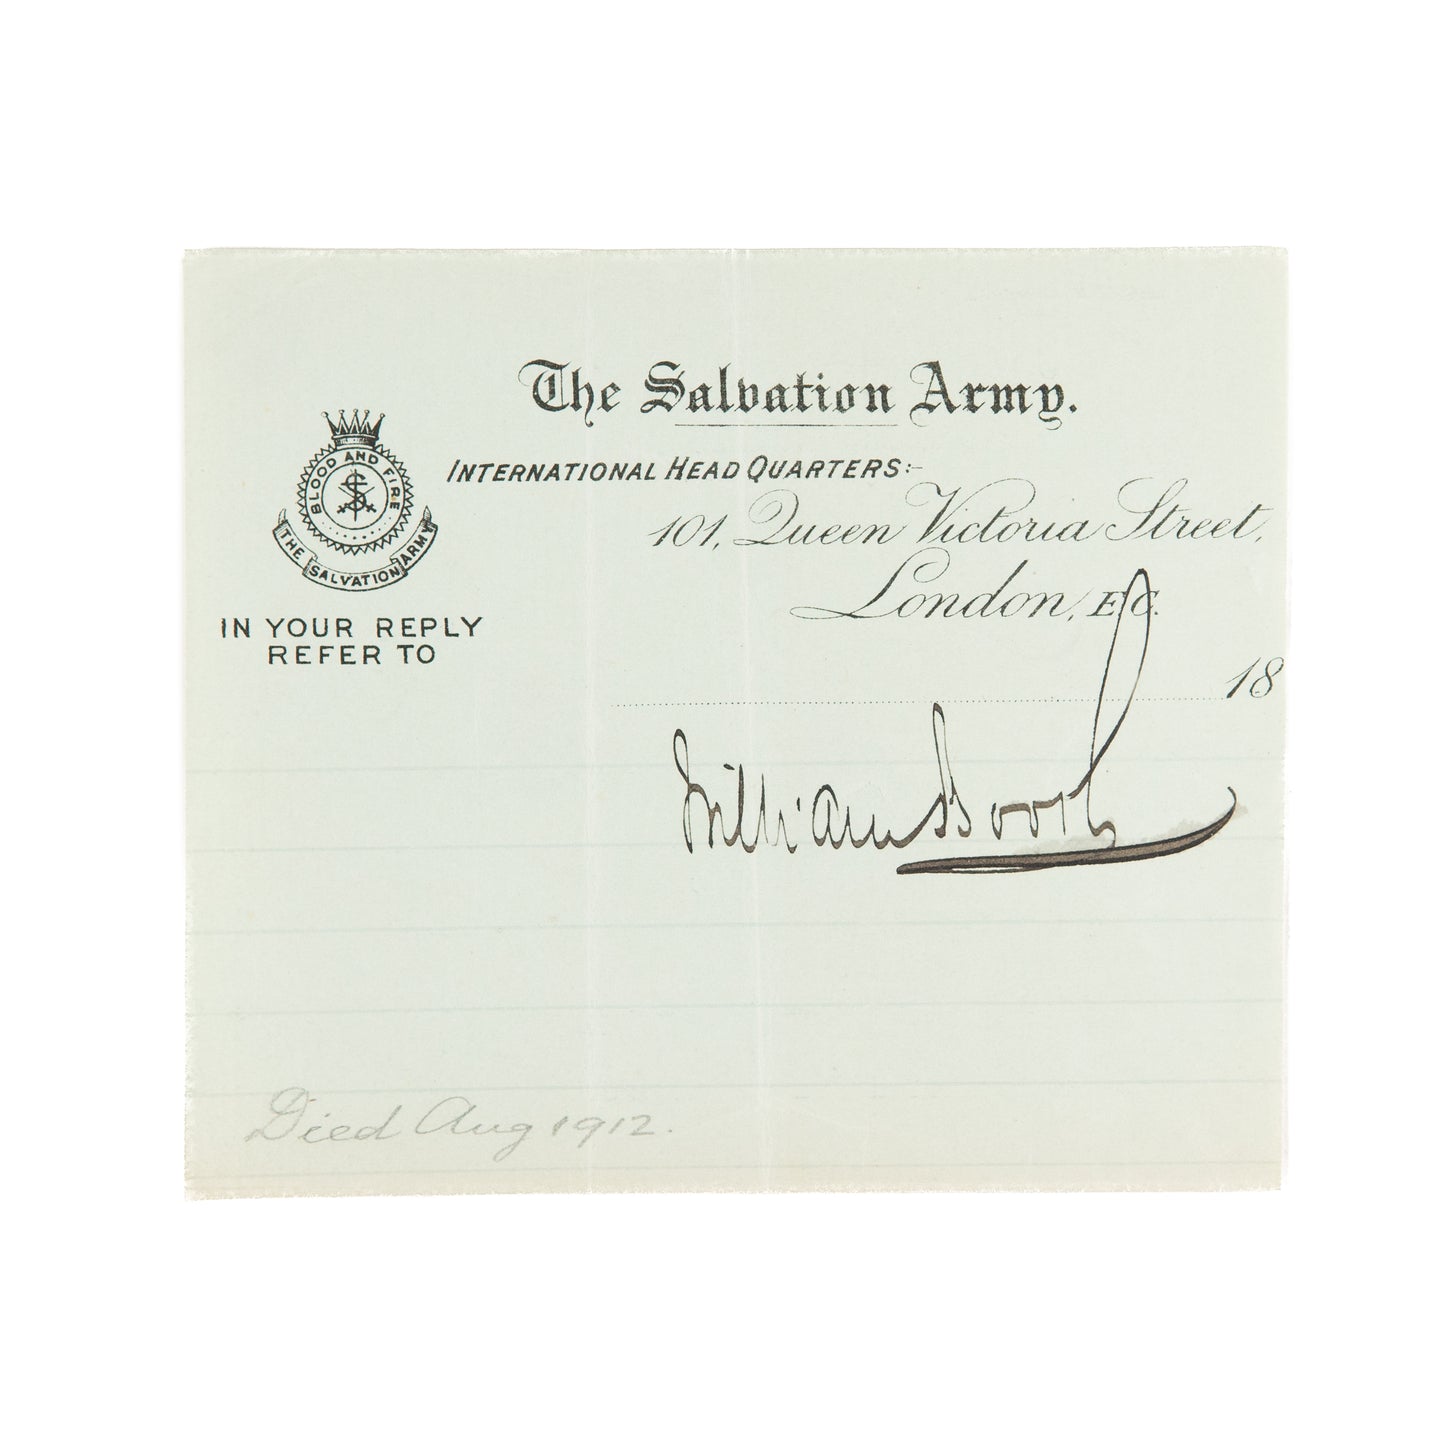 The Salvation Army.
INTERNATIONAL HEAD QUARTERS:-
101, Queen Victoria Street,
London, E.C.
BLOOD AND FIRE
S
THE SALVATION ARMY
IN YOUR REPLY
REFER TO
18
William Booth
Died Aug 1912.